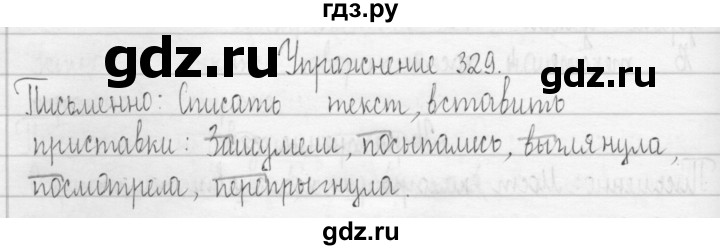 гдз.ру
gdz.ru gdz.ru
Упражнение 329.
Письменно: Списать текст, вставить
приставки: Зашумели, посыпались, выглянула,
посмотрела, перепрыгнула.
gdz.ru gdz.ru